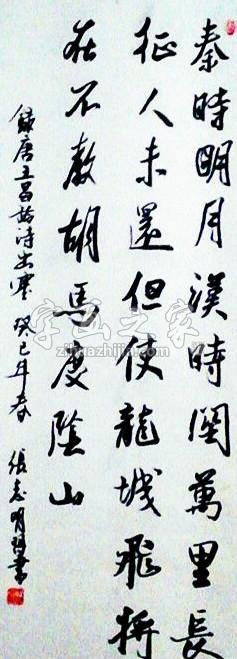 秦時明月漢時関萬里長
征人未還但使龍城飛將
在不教胡馬度陰山
錄唐王昌龄诗出塞 癸巳年春 張志明書
字画之家
zihuazhijia.com